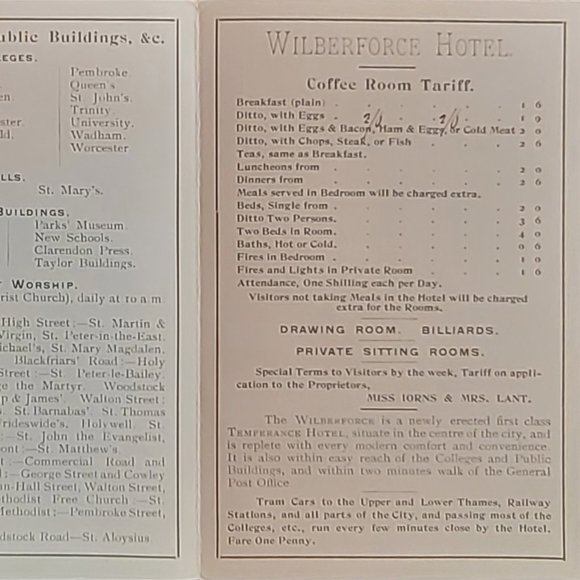 ublic Buildings, &c.
EGES.
Pembroke.
en.
Queen's
St. John's.
Trinity.
ster.
University.
ld.
Wadham.
Worcester
LLS.
St. Mary's.
BUILDINGS.
Parks' Museum.
New Schools.
Clarendon Press.
Taylor Buildings.
WORSHIP.
rist Church), daily at 10 a m.
High Street :—St. Martin &
Virgin, St. Peter-in-the-East.
ichael's, St. Mary Magdalen.
Blackfriars' Road :—Holy
Street :—St. Peter-le-Bailey.
ge the Martyr. Woodstock
p & James'. Walton Street :
s. St. Barnabas'. St. Thomas
rideswide's. Holywell. St.
:—St. John the Evangelist,
ont :—St. Matthew's.
t :—Commercial Road and
l :—George Street and Cowley
n-Hall Street, Walton Street,
ethodist Free Church :—St.
Methodist :—Pembroke Street,
dstock Road—St. Aloysius.
WILBERFORCE HOTEL.
Coffee Room Tariff.
Breakfast (plain) . . . . 1 6
Ditto, with Eggs . 2/1 . 2/1 . 1 9
Ditto, with Eggs & Bacon, Ham & Eggs, or Cold Meat 2 0
Ditto, with Chops, Steak, or Fish . . 2 6
Teas, same as Breakfast.
Luncheons from . . . . 2 0
Dinners from . . . . 2 6
Meals served in Bedroom will be charged extra.
Beds, Single from . . . . 2 0
Ditto Two Persons. . . . . 3 6
Two Beds in Room. . . . . 4 0
Baths, Hot or Cold. . . . . 0 6
Fires in Bedroom . . . . 1 0
Fires and Lights in Private Room . . 1 6
Attendance, One Shilling each per Day.
Visitors not taking Meals in the Hotel will be charged
extra for the Rooms.
DRAWING ROOM. BILLIARDS.
PRIVATE SITTING ROOMS.
Special Terms to Visitors by the week, Tariff on appli-
cation to the Proprietors,
MISS IORNS & MRS. LANT.
The WILBERFORCE is a newly erected first class
TEMPERANCE HOTEL, situate in the centre of the city, and
is replete with every modern comfort and convenience.
It is also within easy reach of the Colleges and Public
Buildings, and within two minutes walk of the General
Post Office
Tram Cars to the Upper and Lower Thames, Railway
Stations, and all parts of the City, and passing most of the
Colleges, etc., run every few minutes close by the Hotel.
Fare One Penny.